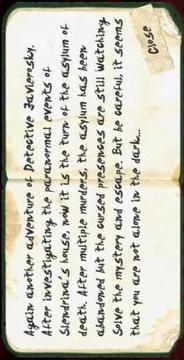 Again another adventure of Detective Javierosky.
After investigating the paranormal events of
Slendrina's house, now it is the turn of the asylum of
death. After multiple murders, the asylum has been
abandoned but the cursed presences are still watching
Solve the mystery and escape. But be careful, it seems
that you are not alone in the dark...
Close